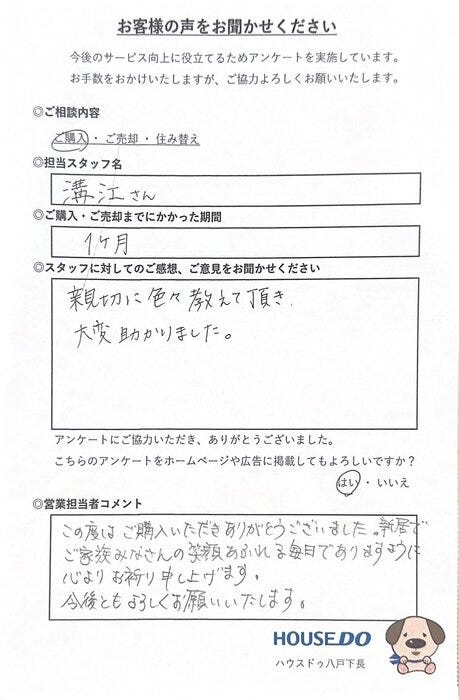 お客様の声をお聞かせください
今後のサービス向上に役立てるためアンケートを実施しています。
お手数をおかけいたしますが、ご協力よろしくお願いいたします。
◎ご相談内容
ご購入・ご売却・住み替え
◎担当スタッフ名
溝江さん
◎ご購入・ご売却までにかかった期間
1ヶ月
◎スタッフに対してのご感想、ご意見をお聞かせください
親切に色々教えて頂き、
大変助かりました。
アンケートにご協力いただき、ありがとうございました。
こちらのアンケートをホームページや広告に掲載してもよろしいですか？
はい・いいえ
◎営業担当者コメント
この度はご購入いただきありがとうございました。新居で
ご家族みなさんの笑顔あふれる毎日でありますように
心よりお祈り申し上げます。
今後ともよろしくお願いいたします。
HOUSEDO
ハウスドゥ八戸下長